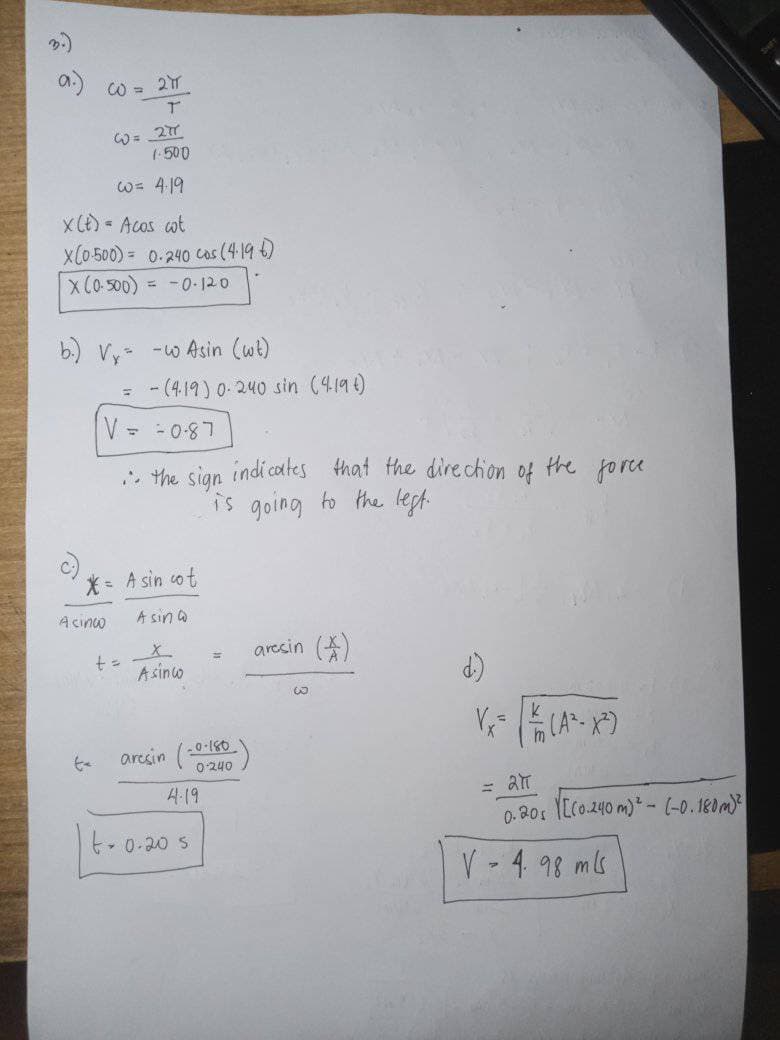 3.)
a.) ω = 2π/T
ω = 2π/1.500
ω = 4.19
X(t) = Acos ωt
X(0.500) = 0.240 cos(4.19 t)
X(0.500) = -0.120
b.) Vx = -ω Asin (ωt)
= -(4.19) 0.240 sin (4.19 t)
V = -0.87
∴ the sign indicates that the direction of the force
is going to the left.
c.) x/Asinω = A sin ωt/A sin ω
t = x/A sinω = arcsin (x/A)/ω
t = arcsin (-0.180/0.240)/4.19
t = 0.20 s
d.)
Vx = √k/m (A² - x²)
= 2π/0.20s √[(0.240 m)² - (-0.180m)²
V = 4.98 m/s